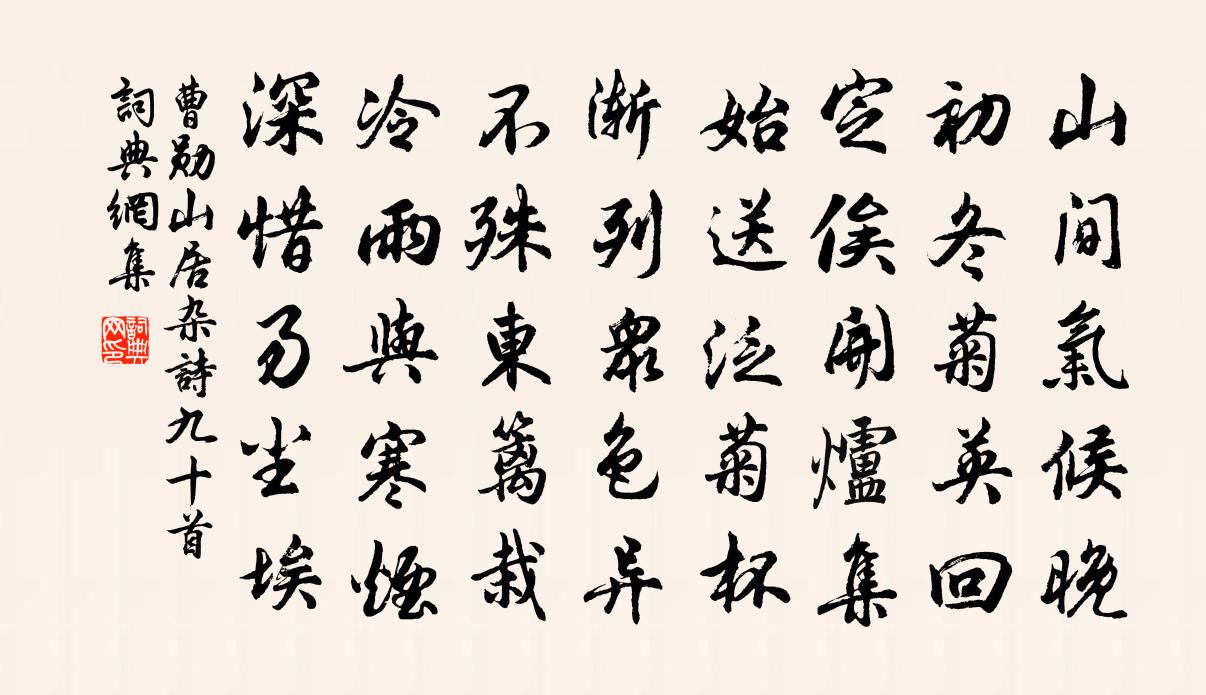 山間氣候晚
初冬菊英回
定俟開爐集
始送泛菊杯
漸列眾色异
不殊東籬栽
冷雨與寒煙
深惜易尘埃
曹勛山居杂詩九十首
詞典網集
詞典网印